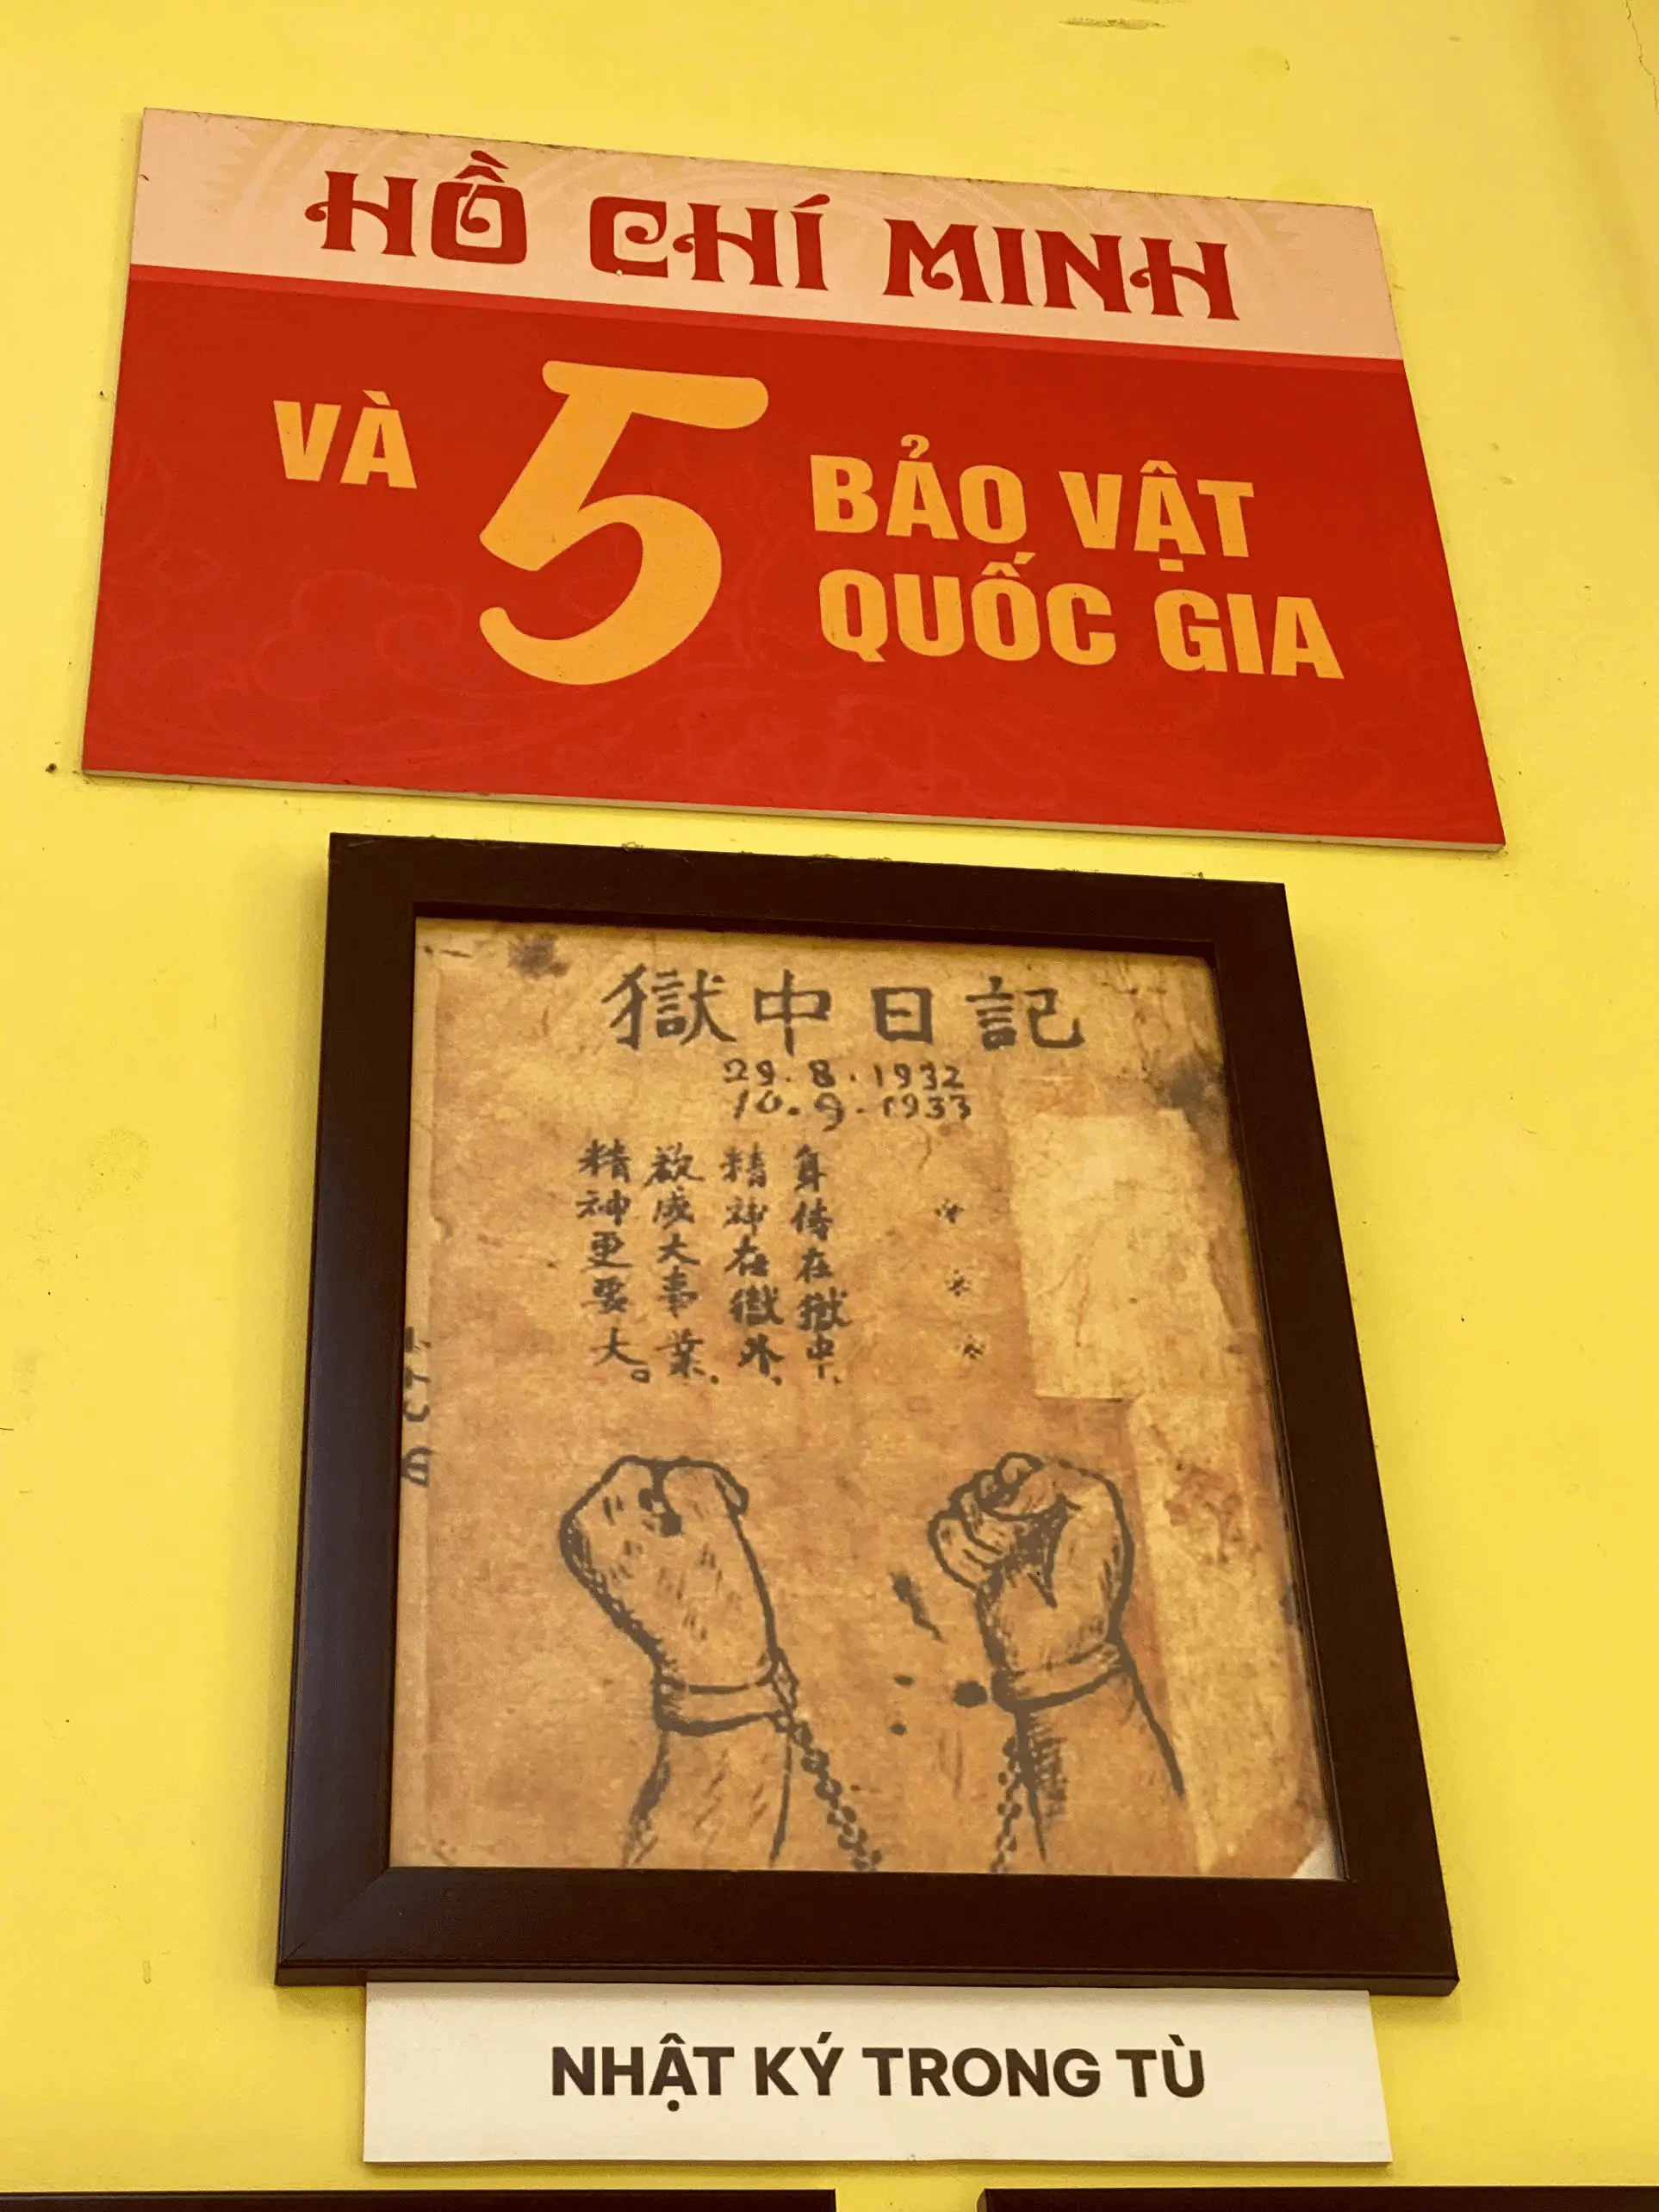 HỒ CHÍ MINH
VÀ 5 BẢO VẬT
QUỐC GIA
獄中日記
29.8.1932
10.9.1933
身体在獄中、
精神在獄外、
欲成大事業、
精神更要大。
NHẬT KÝ TRONG TÙ